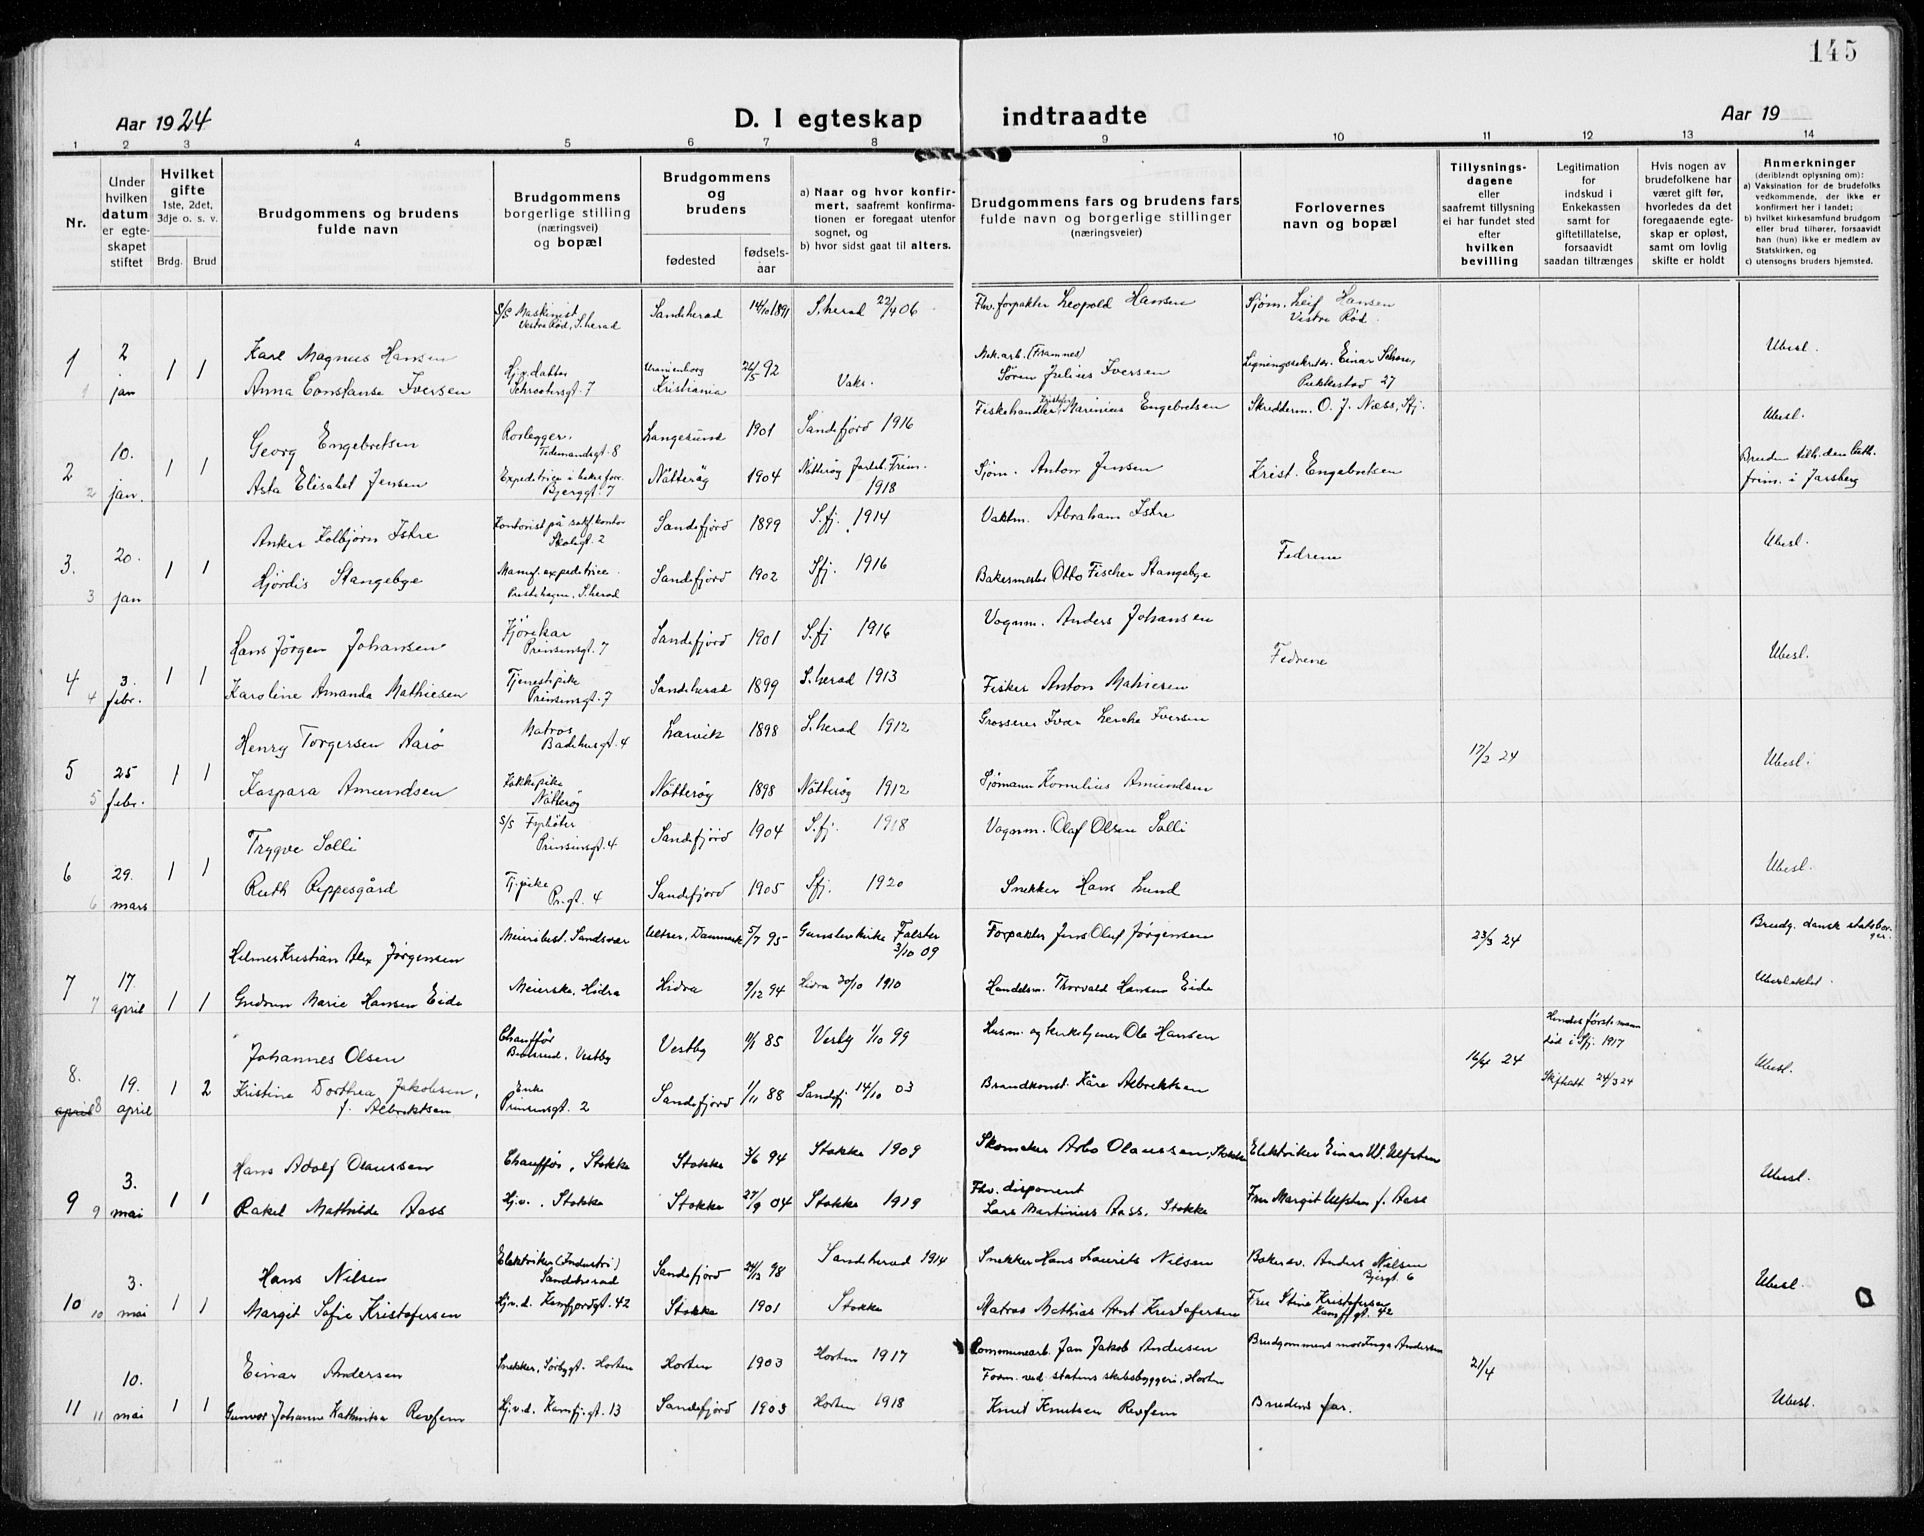 145
Aar 1924
D. I egteskap indtraadte
Aar 19
1 2 3 4 5 6 7 8 9 10 11 12 13 14
Nr.
Under hvilken datum er egteskapet stiftet
Hvilket gifte 1ste, 2det, 3dje o. s. v.
Brdg. Brud
Brudgommens og brudens fulde navn
Brudgommens borgerlige stilling (næringsvei) og bopæl
Brudgommens og brudens
fødested
fødsels-aar
a) Naar og hvor konfirmert, saafremt konfirmationen er foregaat utenfor sognet, og
b) hvor sidst gaat til alters.
Brudgommens fars og brudens fars fulde navn og borgerlige stillinger (næringsveier)
Forlovernes navn og bopæl
Tillysningsdagene eller saafremt tillysning ei har fundet sted efter hvilken bevilling
Legitimation for indskud i Enkekassen samt for giftetillatelse, forsaavidt saadan tiltrænges
Hvis nogen av brudefolkene har været gift før, hvorledes da det foregaaende egteskap er opløst, samt om lovlig skifte er holdt
Anmerkninger (deriblandt oplysning om):
a) Vaksination for de brudefolks vedkommende, der ikke er konfirmert her i landet;
b) hvilket kirkesamfund brudgom eller brud tilhører, forsaavidt han (hun) ikke er medlem av Statskirken, og
c) utensogns bruders hjemsted.
1 2 jan 1 1
Karl Magnus Hansen S/S Maskinist Vestre Rød, S.herad Sandeherad 14/10 1891 S.herad 22/4 06 Fhv. forpakter Leopold Hansen Sjøm. Leif Hansen Vestre Rød.
Anna Constanse Iversen Hj.v. datter Schrøtersgt. 7 Uranienborg Kristiania 26/5 92 Vaks. Mek. arb. (Framnes) Søren Julius Iversen Einar 27 Ubesl.
2 10. jan. 1 1
Georg Engebretsen Rørlegger. Tidemandsgt. 8 Langesund 1901 Sandefjord 1916 Fiskehandler Kristofer Marinius Engebretsen Skredderm. O. J. Næss, Sfj. Ubesl.
Asta Elisabet Jensen Bjerggt. 7 Nøtterøy 1904 Nøtterøy 1918 Sjøm. Anton Jensen Krist. Engebretsen Bruden tilh. den luth. frim. i Jarsberg
3. 20. jan 1 1
Anker Kolbjørn Istre Kontorist på Skolegt. 2 Sandefjord 1899 S.fj. 1914 Vaktm. Abraham Istre Fedrene Ubesl.
Hjørdis Stangebye Manuf. expeditrice. S.herad Sandefjord 1902 Sfj. 1916 Bakermester Otto Fischer Stangebye
4 3. febr. 1 1
Hans Jørgen Johansen Kjørekar Prinsensgt. 7 Sandefjord 1901 S.fj 1916 Vognm. Anders Johansen Fedrene Ubesl.
Karoline Amanda Mathiesen Tjenestepike Prinsensgt. 7 Sandeherad 1899 S.herad 1913 Fisker Anton Mathiesen
5 25 febr. 1 1
Henry Torgersen Aarø Matros Badehusgt. 4 Larvik 1898 S.herad 1912 Grosserer Ivar Lerche Iversen 17/2 24 Ubesl.
Kaspara Amundsen Kokkepike Nøtterøy Nøtterøy 1898 Nøtterøy 1912 Sjømann Kornelius Amundsen
6 29. mars 1 1
Trygve Solli S/S Fyrbøter Prinsensgt. 4 Sandefjord 1904 S.fj. 1918 Vognm. Olaf Olsen Solli Ubesl.
Ruth Rippesgård Tj. pike Pr. gt. 4 Sandefjord 1905 Sfj. 1920 Snekker Hans Lund
7 17. april 1 1
Helmer Kristian Alex Jørgensen Meieribest. Sandsvær Danmark 5/7 95 Gunslev kirke Falster 3/10 09 Forpakter Jens Oluf Jørgensen 23/3 24 Brudg. dansk statsborger.
Gudrun Marie Hansen Eide Meierske, Hidra Hidra 9/12 94 Hidra 30/10 1910 Handelsm. Thorvald Hansen Eide Ubeslektet
8. 19. april 1 2
Johannes Olsen Chauffør Vestby Vestby 11/8 85 Vestby 1/10 99 Husm. og kirketjener Ole Hansen 16/4 24 Hendes første mann død i Sfj. 1917 Ubesl.
Kristine Dorthea Jakobsen, f. Albrektsen Enke Prinsensgt. 2 Sandefjord 1/11 88 Sandefj 14/10 03 Brandkonst. Kåre Albrektsen Skifteatt 24/3 24
9 3. mai 1 1
Hans Adolf Olaussen Chauffør, Stokke Stokke 3/6 94 Stokke 1909 Skomaker Arbo Olaussen, Stokke Elektriker Einar W. Ulfsten Ubesl.
Rakel Mathilde Aass Hj.v., Stokke Stokke 27/9 04 Stokke 1919 Fhv. disponent Lars Martinius Aass, Stokke Fru Margit Ulfsten f. Aass
10 3. mai 1 1
Hans Nilsen Elektriker (Industri) Sandeherad Sandefjord 24/12 98 Sandeherad 1914 Snekker Hans Laurits Nilsen Baker sv. Anders Nilsen Bjergt. 6 Ubesl.
Margit Sofie Kristofersen Hj.v.d. Kamfjordgt. 42 Stokke 1901 Stokke Matros Mathias Arnt Kristofersen Fru Stine Kristofersen Kamfjgt. 42
11 10. mai 1 1
Einar Andersen Snekker, Sørbygt. Horten Horten 1903 Horten 1917 Kommunearb. Jan Jakob Andersen Brudgommens mor Inga Andersen 21/4 Ubesl.
Gunvor Johanne Kathinka Revfem Hj.v.d. Kamfj.gt. 13 Sandefjord 1903 Horten 1918 Form. ved statens skibsbyggeri, Horten Knut Knutsen Revfem Brudens far.